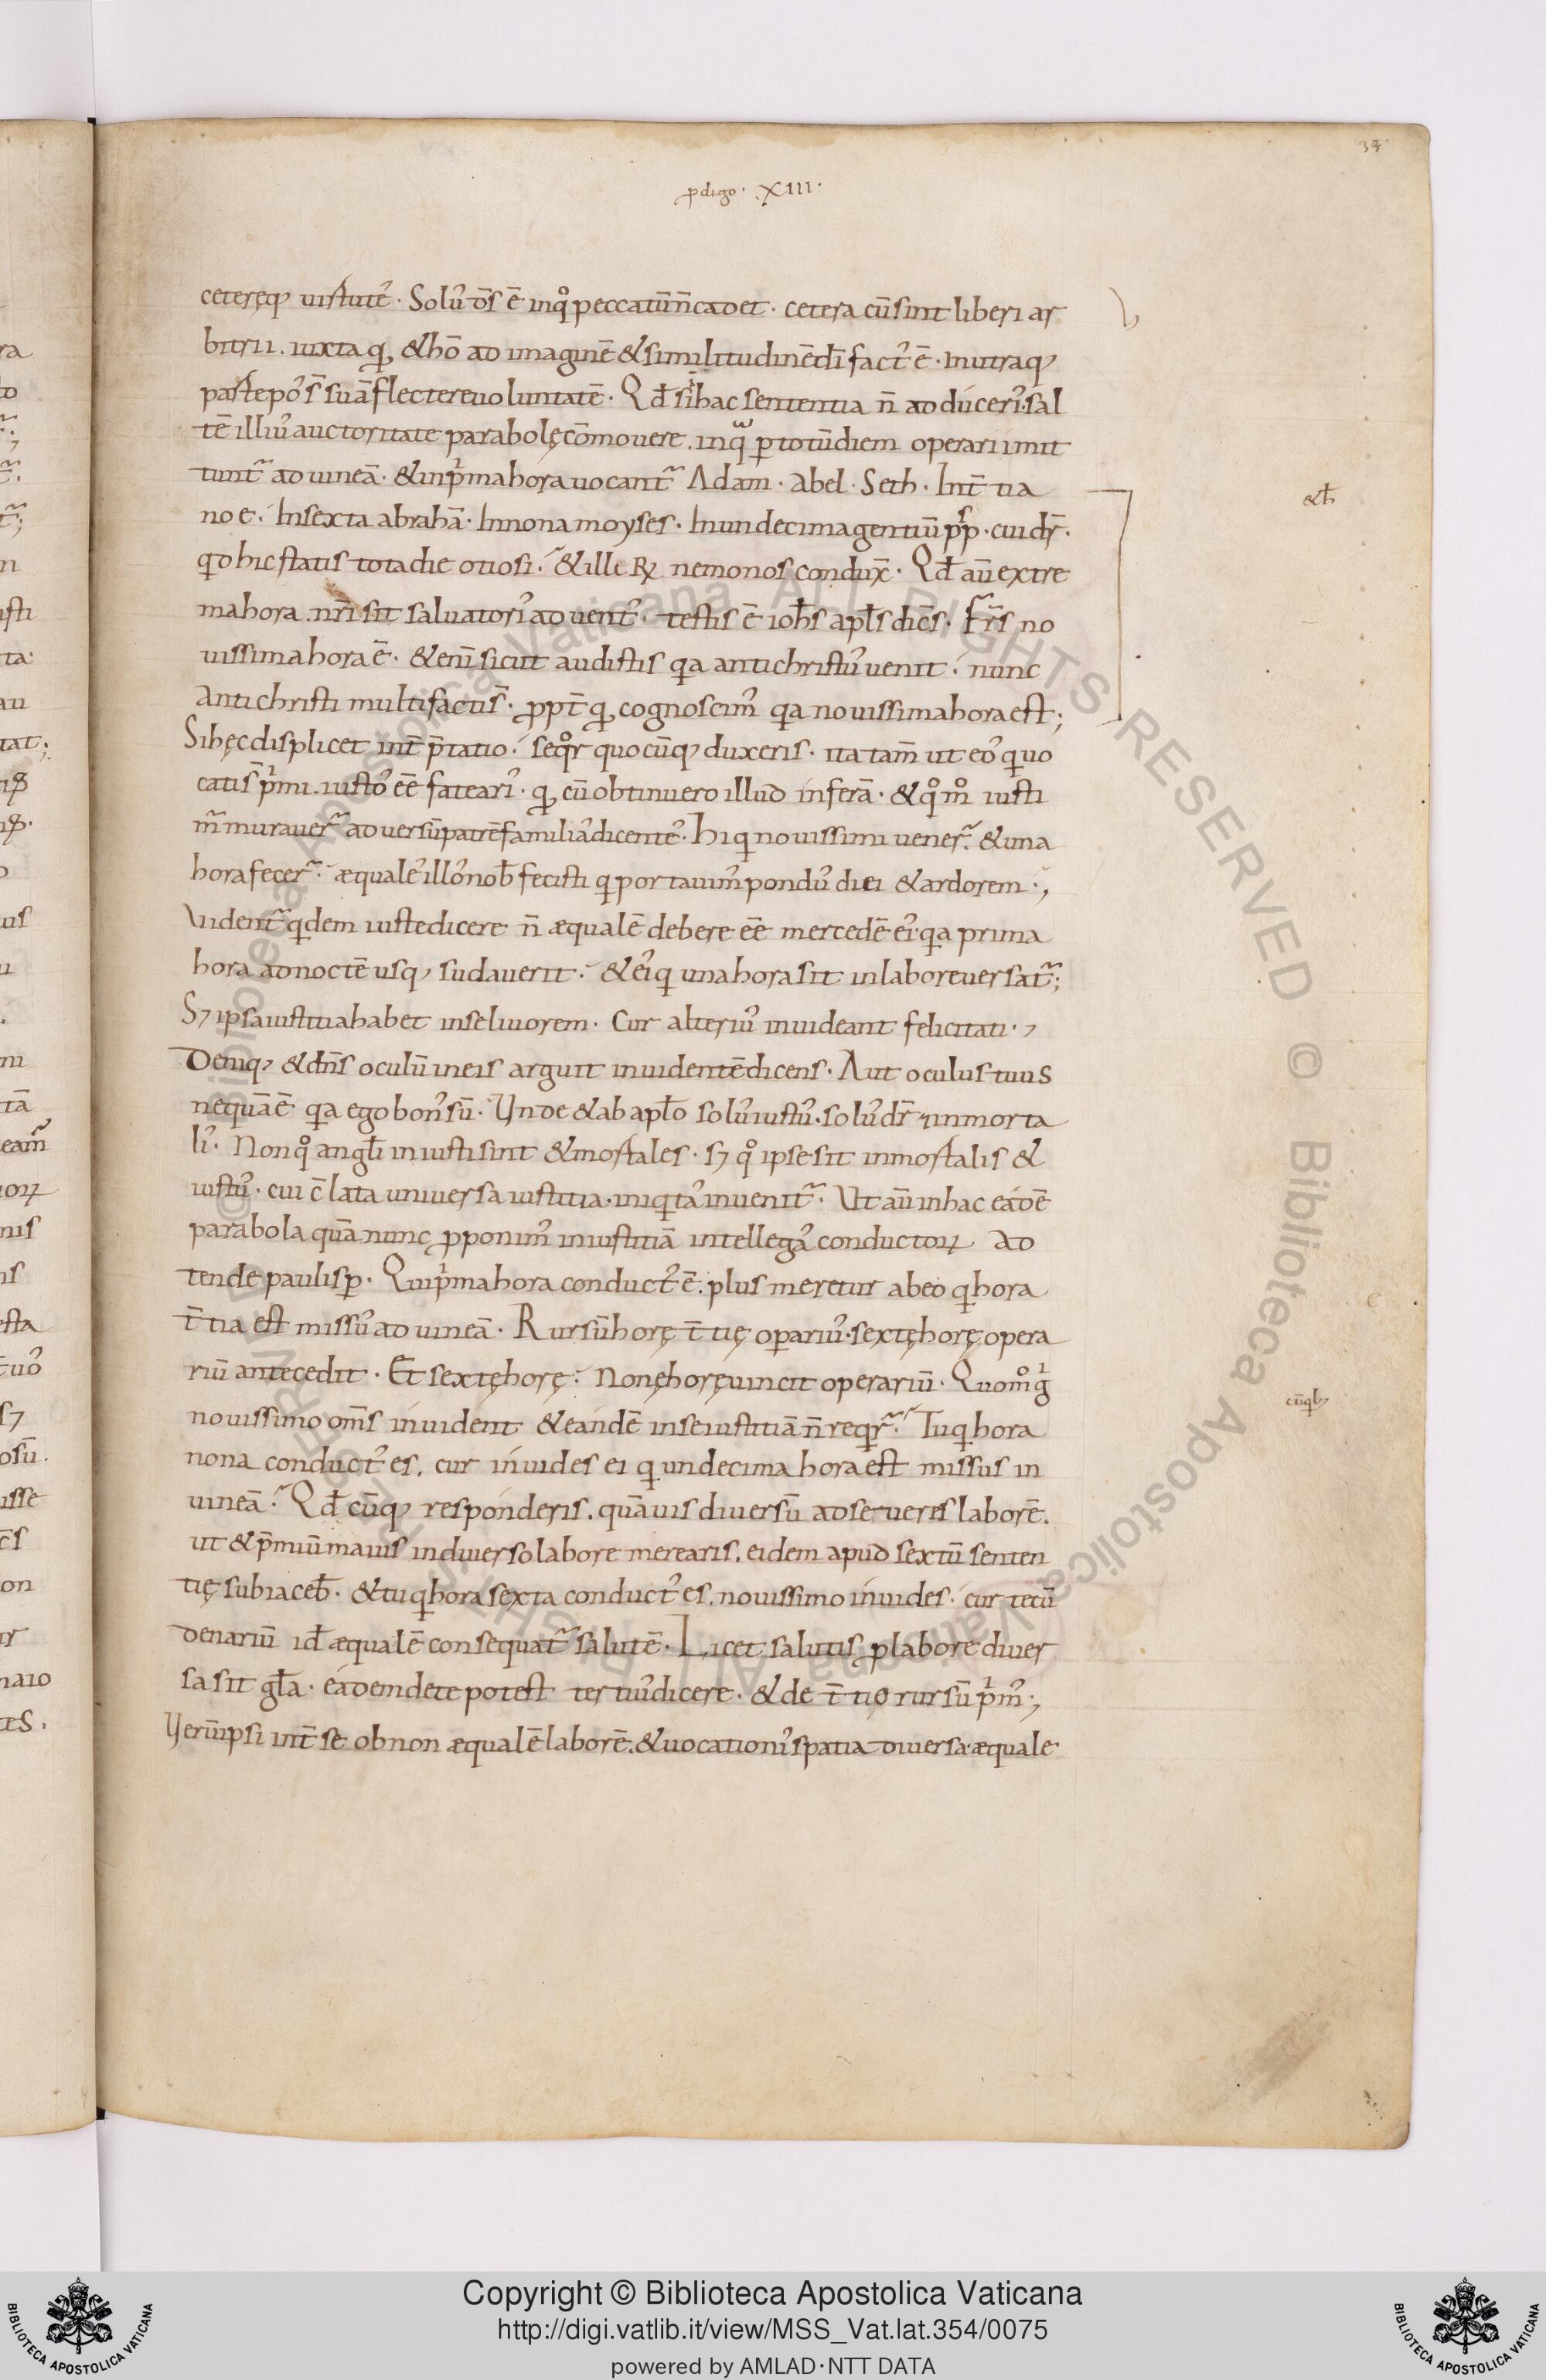 34
ꝓdigo · XIII ·
ceteręq; uirtutes̉ · Solus̉ ds̄ ē inqͦ peccatū n̄ cadet · cetera cū sint liberi ar
bitrii . iuxta q, & hō ad imaginē & similitudinē dī fact᾿ ē · inutraq;
parte pos̉ s̄ suā flectere uoluntatē · Qđ si hac sententia n̄ adduceris̉ · sal
tē illius̉ auctoritate parabolę cōmouere . inq̃ ꝑ totū diem operarii mit
tunt̃ ad uineā · & in p̍ma hora uocant̃ Adam · Abel · Seth · Int̄ tia
noe · In sexta abrahā · In nona moyses · In undecima gentiū pp̍ · cui dr̄ ·
qd hic statis tota die otiosi · & ille R̷ nemo nos condux̄ · Qđ aū extre
ma hora nr̄i sit saluatoris̉ aduent᾿ · testis ē ioh̄s apl̄s dic̄s · Fr̄s no
uissima hora ē · & enī sicut audistis qa antichristus̉ uenit · nunc
antichristi multi facti s̄ · ꝓpt̄ q, cognoscim᾿ qa nouissima hora est ;
Si hęc displicet int̄ p̄tatio · seqͦr quocūq; duxeris · ita tam̄ ut eos̉ q uo
cati s̄ p̍mi . iustos̉ ēē fatearis̉ · q, cū obtinuero illud inferā · & qͦmͦ iusti
m̄murauer̃ aduersū patrē familias̉ dicentes̉ · Hi q nouissimi uener̃ · & una
hora fecer̃ · æquales̉ illos̉ nob̄ fecisti q portauim᾿ pondus̉ diei & ardorem ·,
Uident̃ qdem iuste dicere n̄ æqualē debere ēē mercedē eis̉ qa prima
hora ad noctē usq; sudauerit · & eis̉ q una hora sit in labore uersat̃ ;
S; ipsa iustitia habet in se liuorem · Cur alterius̉ inuideant felicitati ·,
Deniq; & dn̄s oculū in eis arguit inuidentē dicens · Aut oculus tuus
nequā ē qa ego bonus̉ sū · Unde & ab apl̄o solus̉ iustus̉ · solus̉ dr̄ inmorta
lis̉ · Non qͦ angl̄i iniusti sint & mortales · s; qͦ ipse sit inmortalis &
iustus̉ · cui c̄lata uniuersa iustitia · iniqtas̉ inuenit̃ · Ut aū in hac eadē
parabola quā nunc ꝓponim᾿ iniustitiā intellegas̉ conductoꝝ ad
tende paulisꝑ · Qui p̍ma hora conduct᾿ ē · plus meretur ab eo q hora
t̄tia est missus̉ ad uineā · Rursū horę t̄tię oꝑarius̉ · sextę horę opera
riū antecedit · Et sextę horę · Nonę horę uincit operariū · Quomͦ g̍
nouissimo oms̄ inuident & eandē in se iustitiā n̄ reqr̃ · Tu q hora
nona conduct᾿ es . cur inuides ei q undecima hora est missus in
uineā · Qđ cūq; responderis . quāuis diuersū adserueris laborē .
ut & p̄miū maius in diuerso labore merearis . eidem apud sextū senten
tię subiaceb̄ · & tu q hora sexta conduct᾿ es . nouissimo inuides · cur tecū
denariū iđ æqualē consequat̃ salutē · Licet salutis ꝓ labore diuer
sa sit gl̄a · eadem de te potest tertius̉ dicere · & de t̄tio rursū p̍m᾿ ·,
Uerū ipsi int̄ se ob non æqualē laborē . & uocationis̉ spatia diuersa · æquale
Copyright © Biblioteca Apostolica Vaticana
http://digi.vatlib.it/view/MSS_Vat.lat.354/0075
powered by AMLAD·NTT DATA